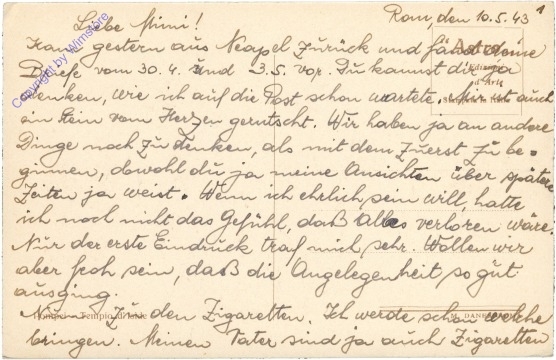 Rom den 10.5.43
1
Liebe Mimi!
Kam gestern aus Neapel zurück und fand deine
Briefe vom 30.4. und 3.5. vor. Du kannst dir ja
denken, wie ich auf die Post schon wartete. Mir ist auch
ein Stein vom Herzen gerutscht. Wir haben ja an andere
Dinge noch zu denken, als mit dem zuerst zu be-
ginnen, obwohl du ja meine Ansichten über spätere
Zeiten ja weist. Wenn ich ehrlich sein will, hatte
ich noch nicht das Gefühl, daß alles verloren wäre.
Nur der erste Eindruck traf mich sehr. Wollen wir
aber froh sein, daß die Angelegenheit so gut
ausging.
Nun zu den Zigaretten. Ich werde schon welche
bringen. Meinen Vater sind ja auch Zigaretten
Copyright by Wimstore
Tempio